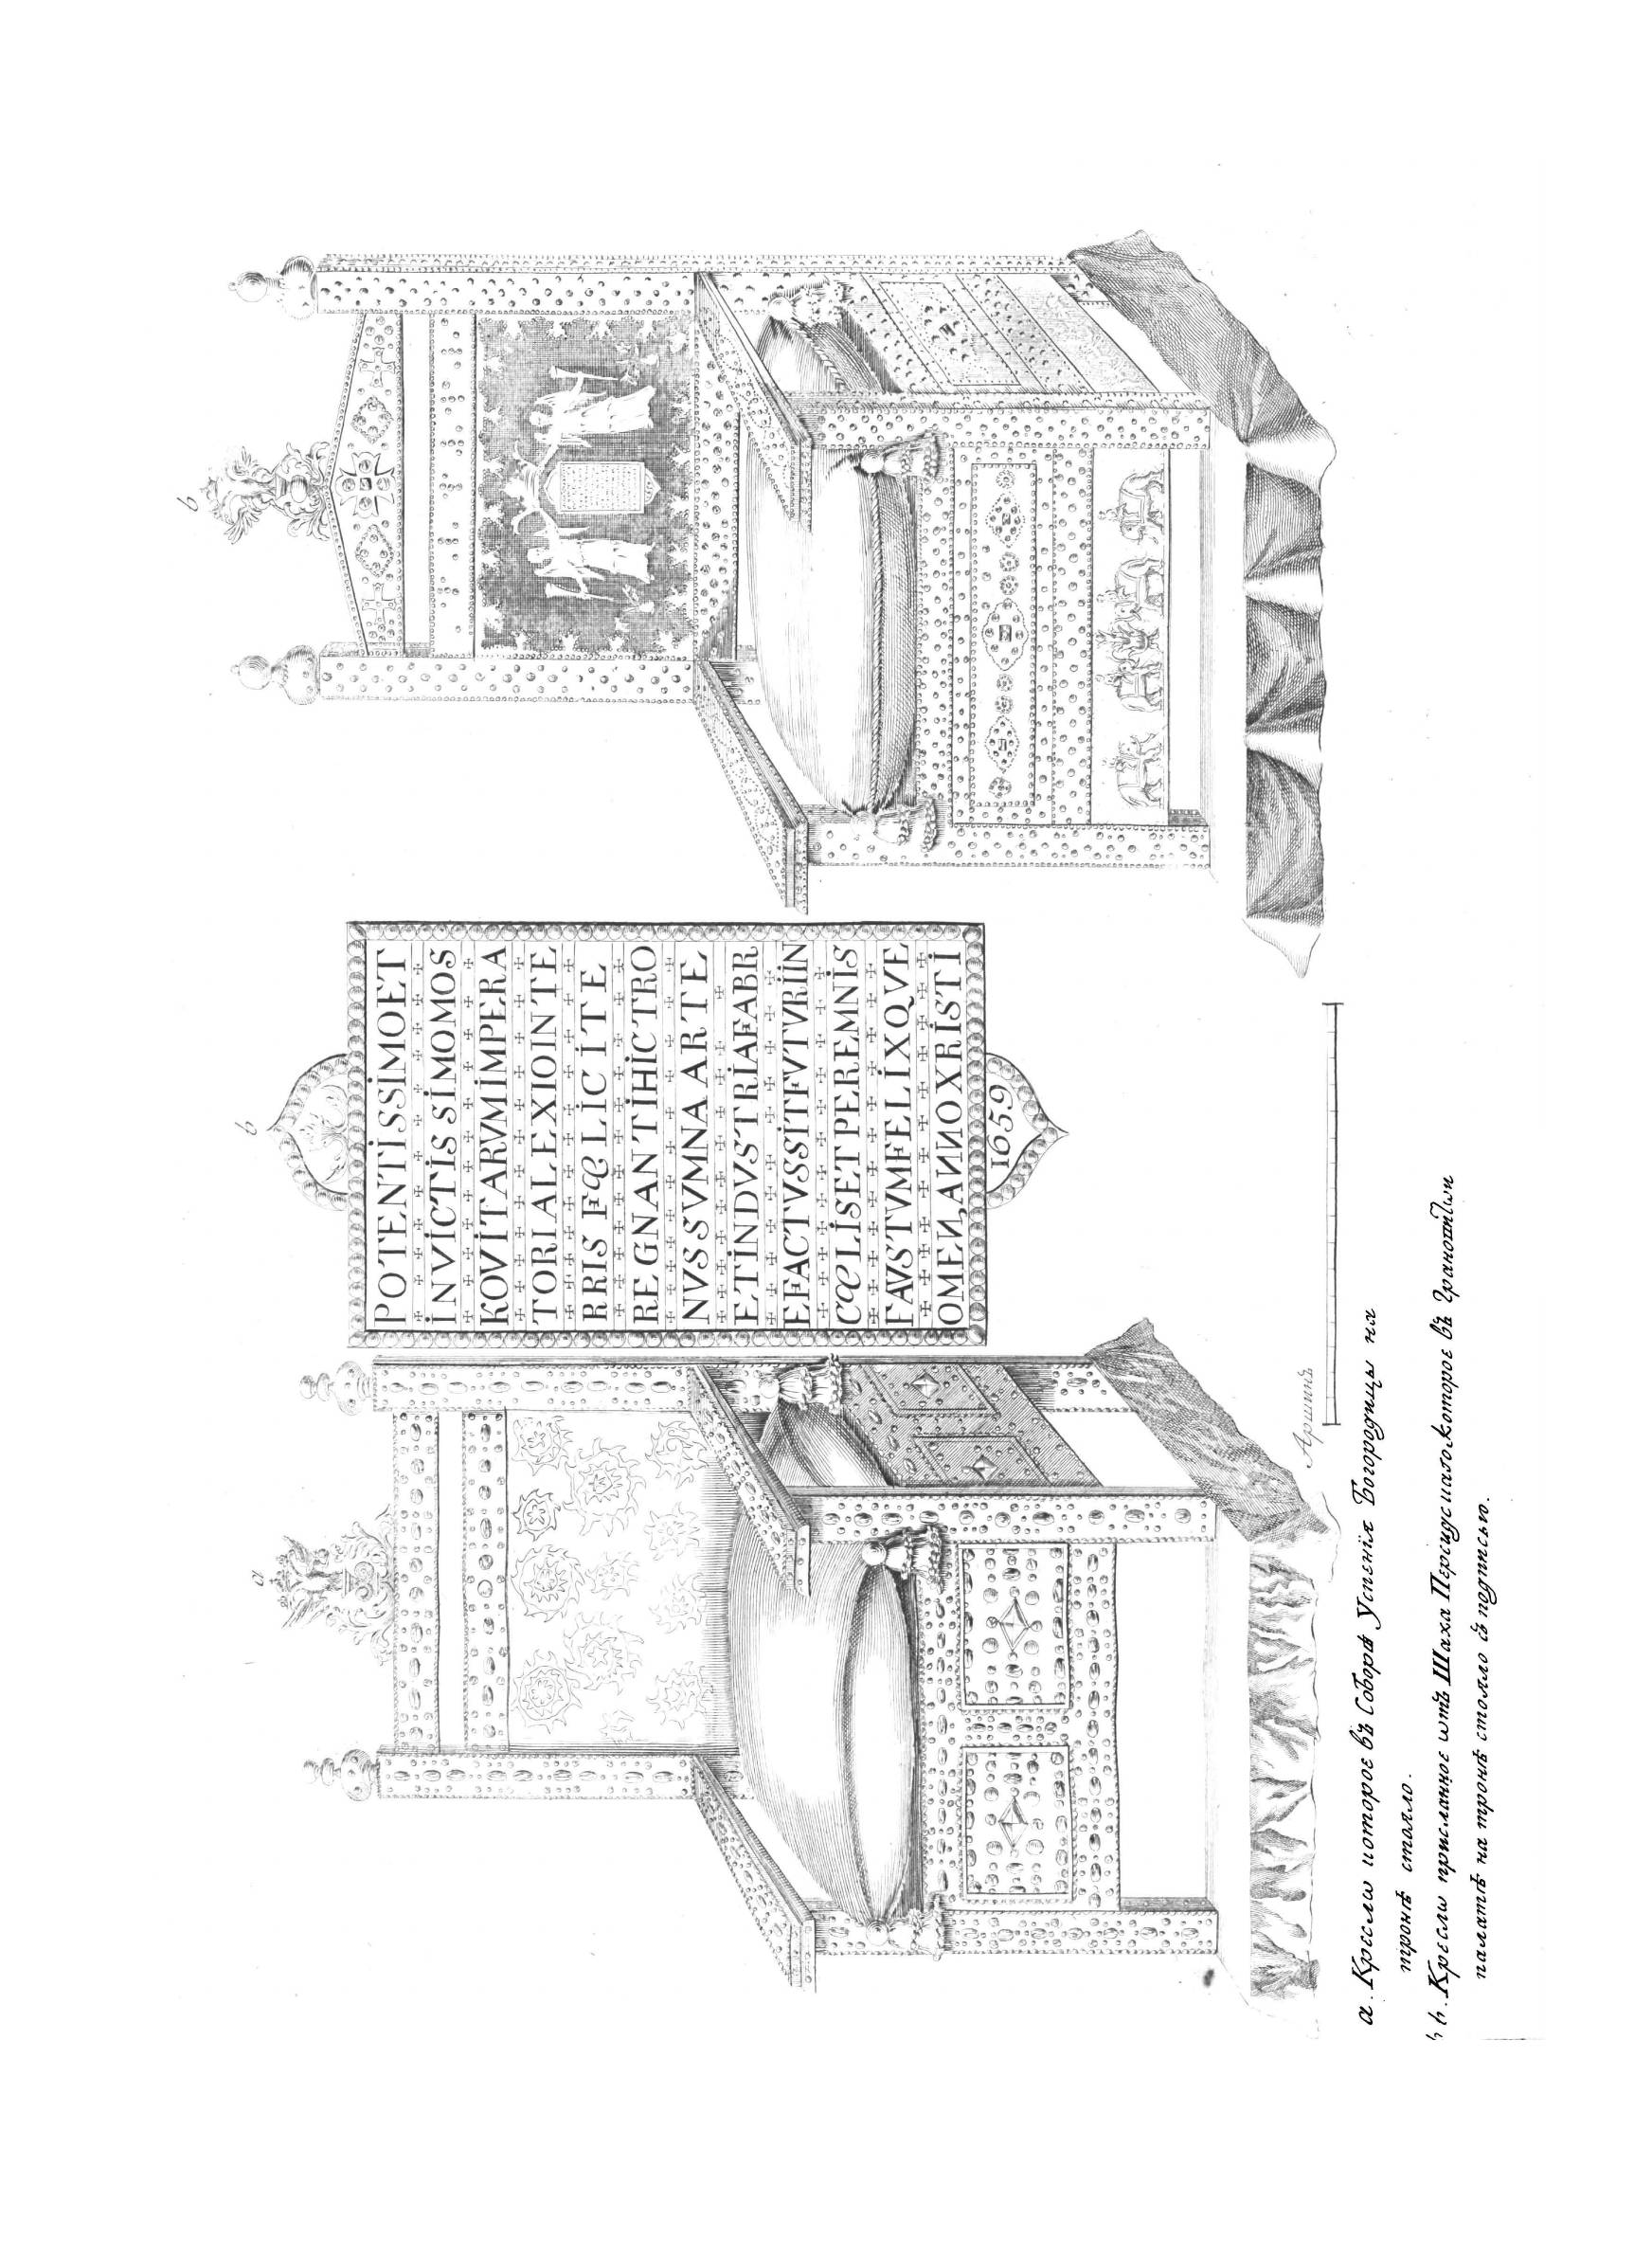 b
b
a
POTENTİSSİMOET
İNVİCTİSSİMOMOS
KOVİTARVMİMPERA
TORIALEXIOINTE
RRIS FœLİCİTE
REGNANTİHİCTRO
NVSSVMNAARTE
ETİNDVSTRİAFABR
EFACTVSSİTFVTVRİİN
CœLİSETPEREMNİS
FAVSTVMFELİXQVE
OMEN,ANNOXRİSTİ
1659
Аршинъ
a. Кресла которое въ Соборѣ Успенїя Богородицы на
тронѣ стояло.
b. Кресла присланное ѿтъ Шаха Персидскаго которое въ Грановитои
палатѣ на тронѣ стояло съ подписью.